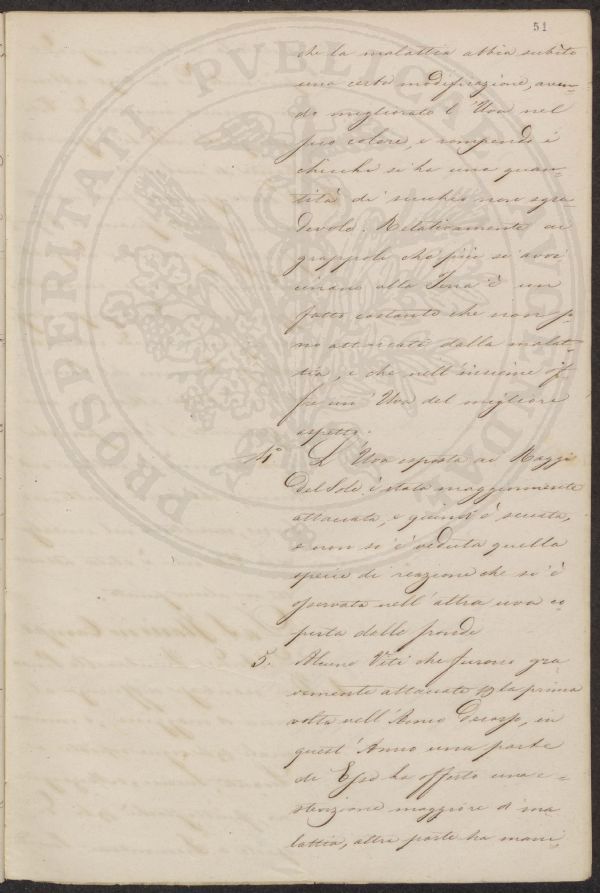 51
che la malattia abbia subito
una certa modificazione, aven-
do migliorato l'Uva nel
suo colore, e rompendo i
chicchi si ha una quan-
tità di succhio non sgra
devole. Relativamente ai
grappoli che più si avvi
cinano alla Terra è un
fatto costante che non so-
no attaccati dalla malat-
tia, e che nell'insieme of
fre un'Uva del migliore
aspetto.
4.° L'Uva esposta ai Raggi
del Sole è stata maggiormente
attaccata, e quindi è seccata,
e non si è veduta quella
specie di reazione che si è
osservata nell'altra uva co-
perta dalle fronde
5. Alcune Viti che furono gra
vemente attaccate la prima
volta nell'Anno Decorso, in
quest'Anno una parte
di Esse ha offerto una e-
stenzione maggiore di ma
lattia, altra parte ha mani,
PROSPERITATI PVBLICAE AVGENDAE